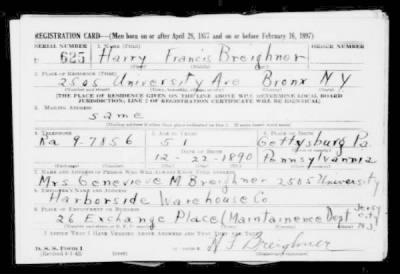 REGISTRATION CARD—(Men born on or after April 28, 1877 and on or before February 16, 1897)
SERIAL NUMBER 1. NAME (Print) ORDER NUMBER
U 625 Harry Francis Breighner
2. PLACE OF RESIDENCE (Print)
2505 University Ave Bronx N Y
[THE PLACE OF RESIDENCE GIVEN ON THE LINE ABOVE WILL DETERMINE LOCAL BOARD
JURISDICTION; LINE 2 OF REGISTRATION CERTIFICATE WILL BE IDENTICAL]
3. MAILING ADDRESS
same
[Mailing address if other than place indicated on line 2. If same insert word same]
4. TELEPHONE 5. AGE IN YEARS 6. PLACE OF BIRTH
51 Gettysburg Pa
DATE OF BIRTH
Ra 9-7856 12-22-1890 Pennsylvannia
7. NAME AND ADDRESS OF PERSON WHO WILL ALWAYS KNOW YOUR ADDRESS
Mrs Genevieve M Breighner 2505 University
8. EMPLOYER'S NAME AND ADDRESS
Harborside Warehouse Co
9. PLACE OF EMPLOYMENT OR BUSINESS
26 Exchange Place (Maintainence Dept Jersy City NJ)
I AFFIRM THAT I HAVE VERIFIED ABOVE ANSWERS AND THAT THEY ARE TRUE.
D. S. S. Form 1
H F Breighner